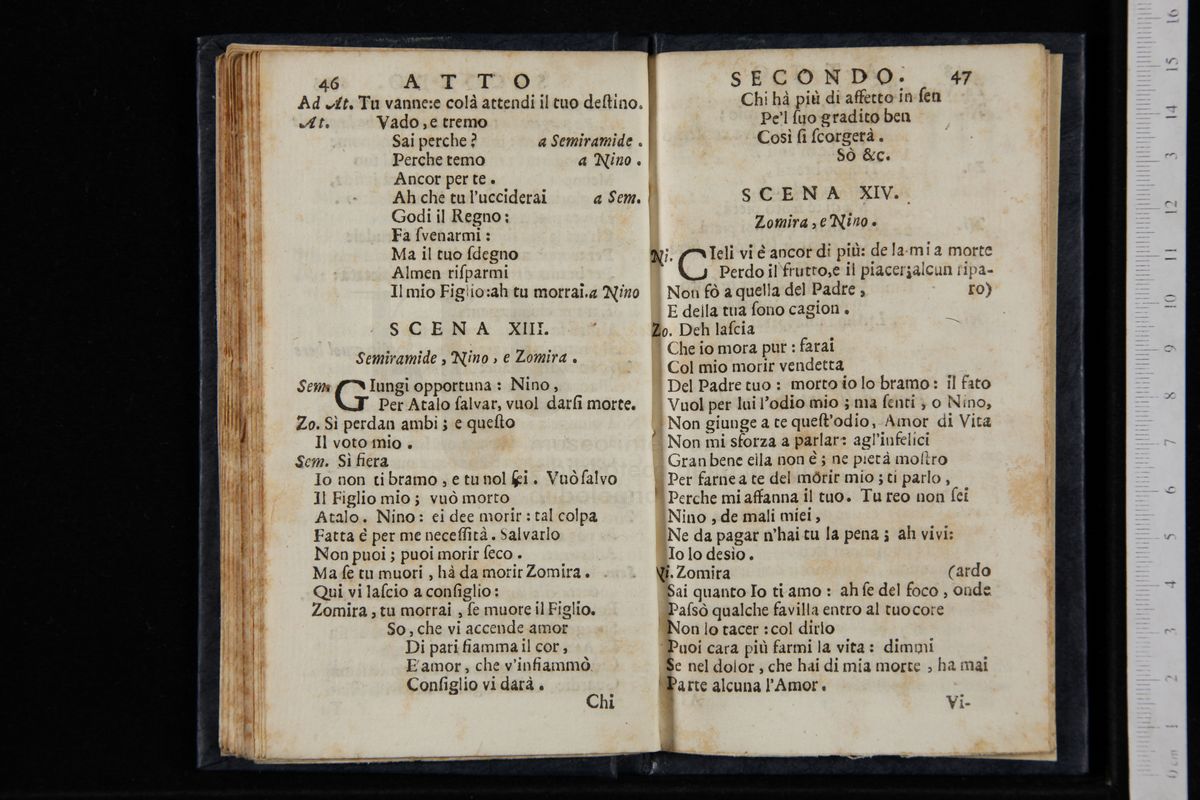 46 ATTO
Ad At. Tu vanne:e colà attendi il tuo deſtino.
At. Vado, e tremo
Sai perche? a Semiramide.
Perche temo a Nino.
Ancor per te.
Ah che tu l'ucciderai a Sem.
Godi il Regno:
Fa ſvenarmi:
Ma il tuo ſdegno
Almen riſparmi
Il mio Figlio:ah tu morrai.a Nino
SCENA XIII.
Semiramide, Nino, e Zomira.
Sem. GIungi opportuna: Nino,
Per Atalo ſalvar, vuol darſi morte.
Zo. Sì perdan ambi; e queſto
Il voto mio.
Sem. Sì fiera
Io non ti bramo, e tu nol ſei. Vuò ſalvo
Il Figlio mio; vuò morto
Atalo. Nino: ei dee morir: tal colpa
Fatta è per me neceſſità. Salvarlo
Non puoi; puoi morir ſeco.
Ma ſe tu muori, hà da morir Zomira.
Qui vi laſcio a conſiglio:
Zomira, tu morrai, ſe muore il Figlio.
So, che vi accende amor
Di pari fiamma il cor,
E amor, che v'infiammò
Conſiglio vi darà.
Chi
SECONDO. 47
Chi hà più di affetto in ſen
Pe'l ſuo gradito ben
Così ſi ſcorgerà.
Sò &c.
SCENA XIV.
Zomira, e Nino.
Ni. CIeli vi è ancor di più: de la mia morte
Perdo il frutto,e il piacer;alcun ripa-
Non fò a quella del Padre, ro)
E della tua ſono cagion.
Zo. Deh laſcia
Che io mora pur: farai
Col mio morir vendetta
Del Padre tuo: morto io lo bramo: il fato
Vuol per lui l'odio mio; ma ſenti, o Nino,
Non giunge a te queſt'odio, Amor di Vita
Non mi sforza a parlar: agl'infelici
Gran bene ella non è; ne pietà moſtro
Per farne a te del morir mio; ti parlo,
Perche mi affanna il tuo. Tu reo non ſei
Nino, de mali miei,
Ne da pagar n'hai tu la pena; ah vivi:
Io lo desìo.
Ni. Zomira (ardo
Sai quanto Io ti amo: ah ſe del foco, onde
Paſsò qualche favilla entro al tuo core
Non lo tacer: col dirlo
Puoi cara più farmi la vita: dimmi
Se nel dolor, che hai di mia morte, ha mai
Parte alcuna l'Amor.
Vi-
16
15
14
13
12
11
10
9
8
7
6
5
4
3
2
1
0 cm